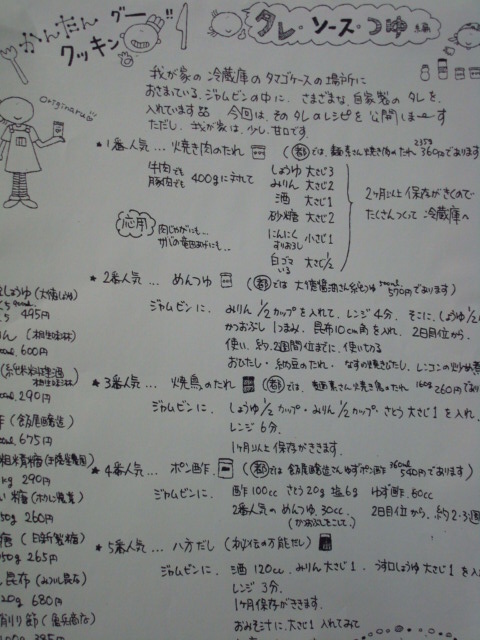 かんたん グー
クッキング
タレ・ソース・つゆ 編
我が家の冷蔵庫のタマゴケースの場所に
おさまている。ジャムビンの中に、さまざまな、自家製のタレを、
入れています 今回は、そのタレのレシピを公開しま〜す
ただし、我が家は、少し、甘口です。
Originaru
*1番人気… 焼き肉のたれ (都)では、麹素さん焼き肉のたれ 235g 360円であります
牛肉でも
豚肉でも 400gに対して
しょうゆ 大さじ3
みりん 大さじ2
酒 大さじ1
砂糖 大さじ2
にんにくすりおろし 小さじ1
白ゴマいる 大さじ1/2
2ヶ月以上 保存がきくので
たくさんつくって 冷蔵庫へ
応用 肉じゃがにも…
サバの竜田あげにも…
*2番人気… めんつゆ (都)では 大徳醤油さん 570円であります)
ジャムビンに、 みりん 1/2カップを入れて、レンジ4分。そこに、しょうゆ1/2
かつおぶし 1つまみ、昆布10cm角を入れ、2日目位から、
使い、約2週間位までに、使いきる
おひたし・納豆のたれ・なすの焼きびたし、レンコンの炒め煮
*3番人気… 焼鳥のたれ (都)では、麹素さん焼き鳥のたれ 160g 260円であり
ジャムビンに しょうゆ 1/2カップ・みりん 1/2カップ・さとう 大さじ1を入れ、
レンジ 6分。
1ヶ月以上 保存がききます。
*4番人気… ポン酢 (都)では 飯尾醸造さんゆずポン酢 360ml 540円であります)
ジャムビンに、 酢100cc さとう20g 塩6g ゆず酢80cc
2番人気の めんつゆ30cc 2日目位から、約2・3週
(かつおぶしをこして)
*5番人気… 八方だし (秘伝の万能だし)
ジャムビンに、 酒 120cc、みりん 大さじ1、うす口しょうゆ 大さじ1を入
レンジ 3分。
1ヶ月保存ができます。
おみそ汁に、大さじ1入れてみて
しょうゆ (大徳しょうゆ)
495円
りん (相生味淋)
600円
相生味淋
290円
酢 (飯尾醸造)
675円
290円
50g 260円
糖 (日新製糖)
50g 265円
昆布
20g 680円
削り節
395円